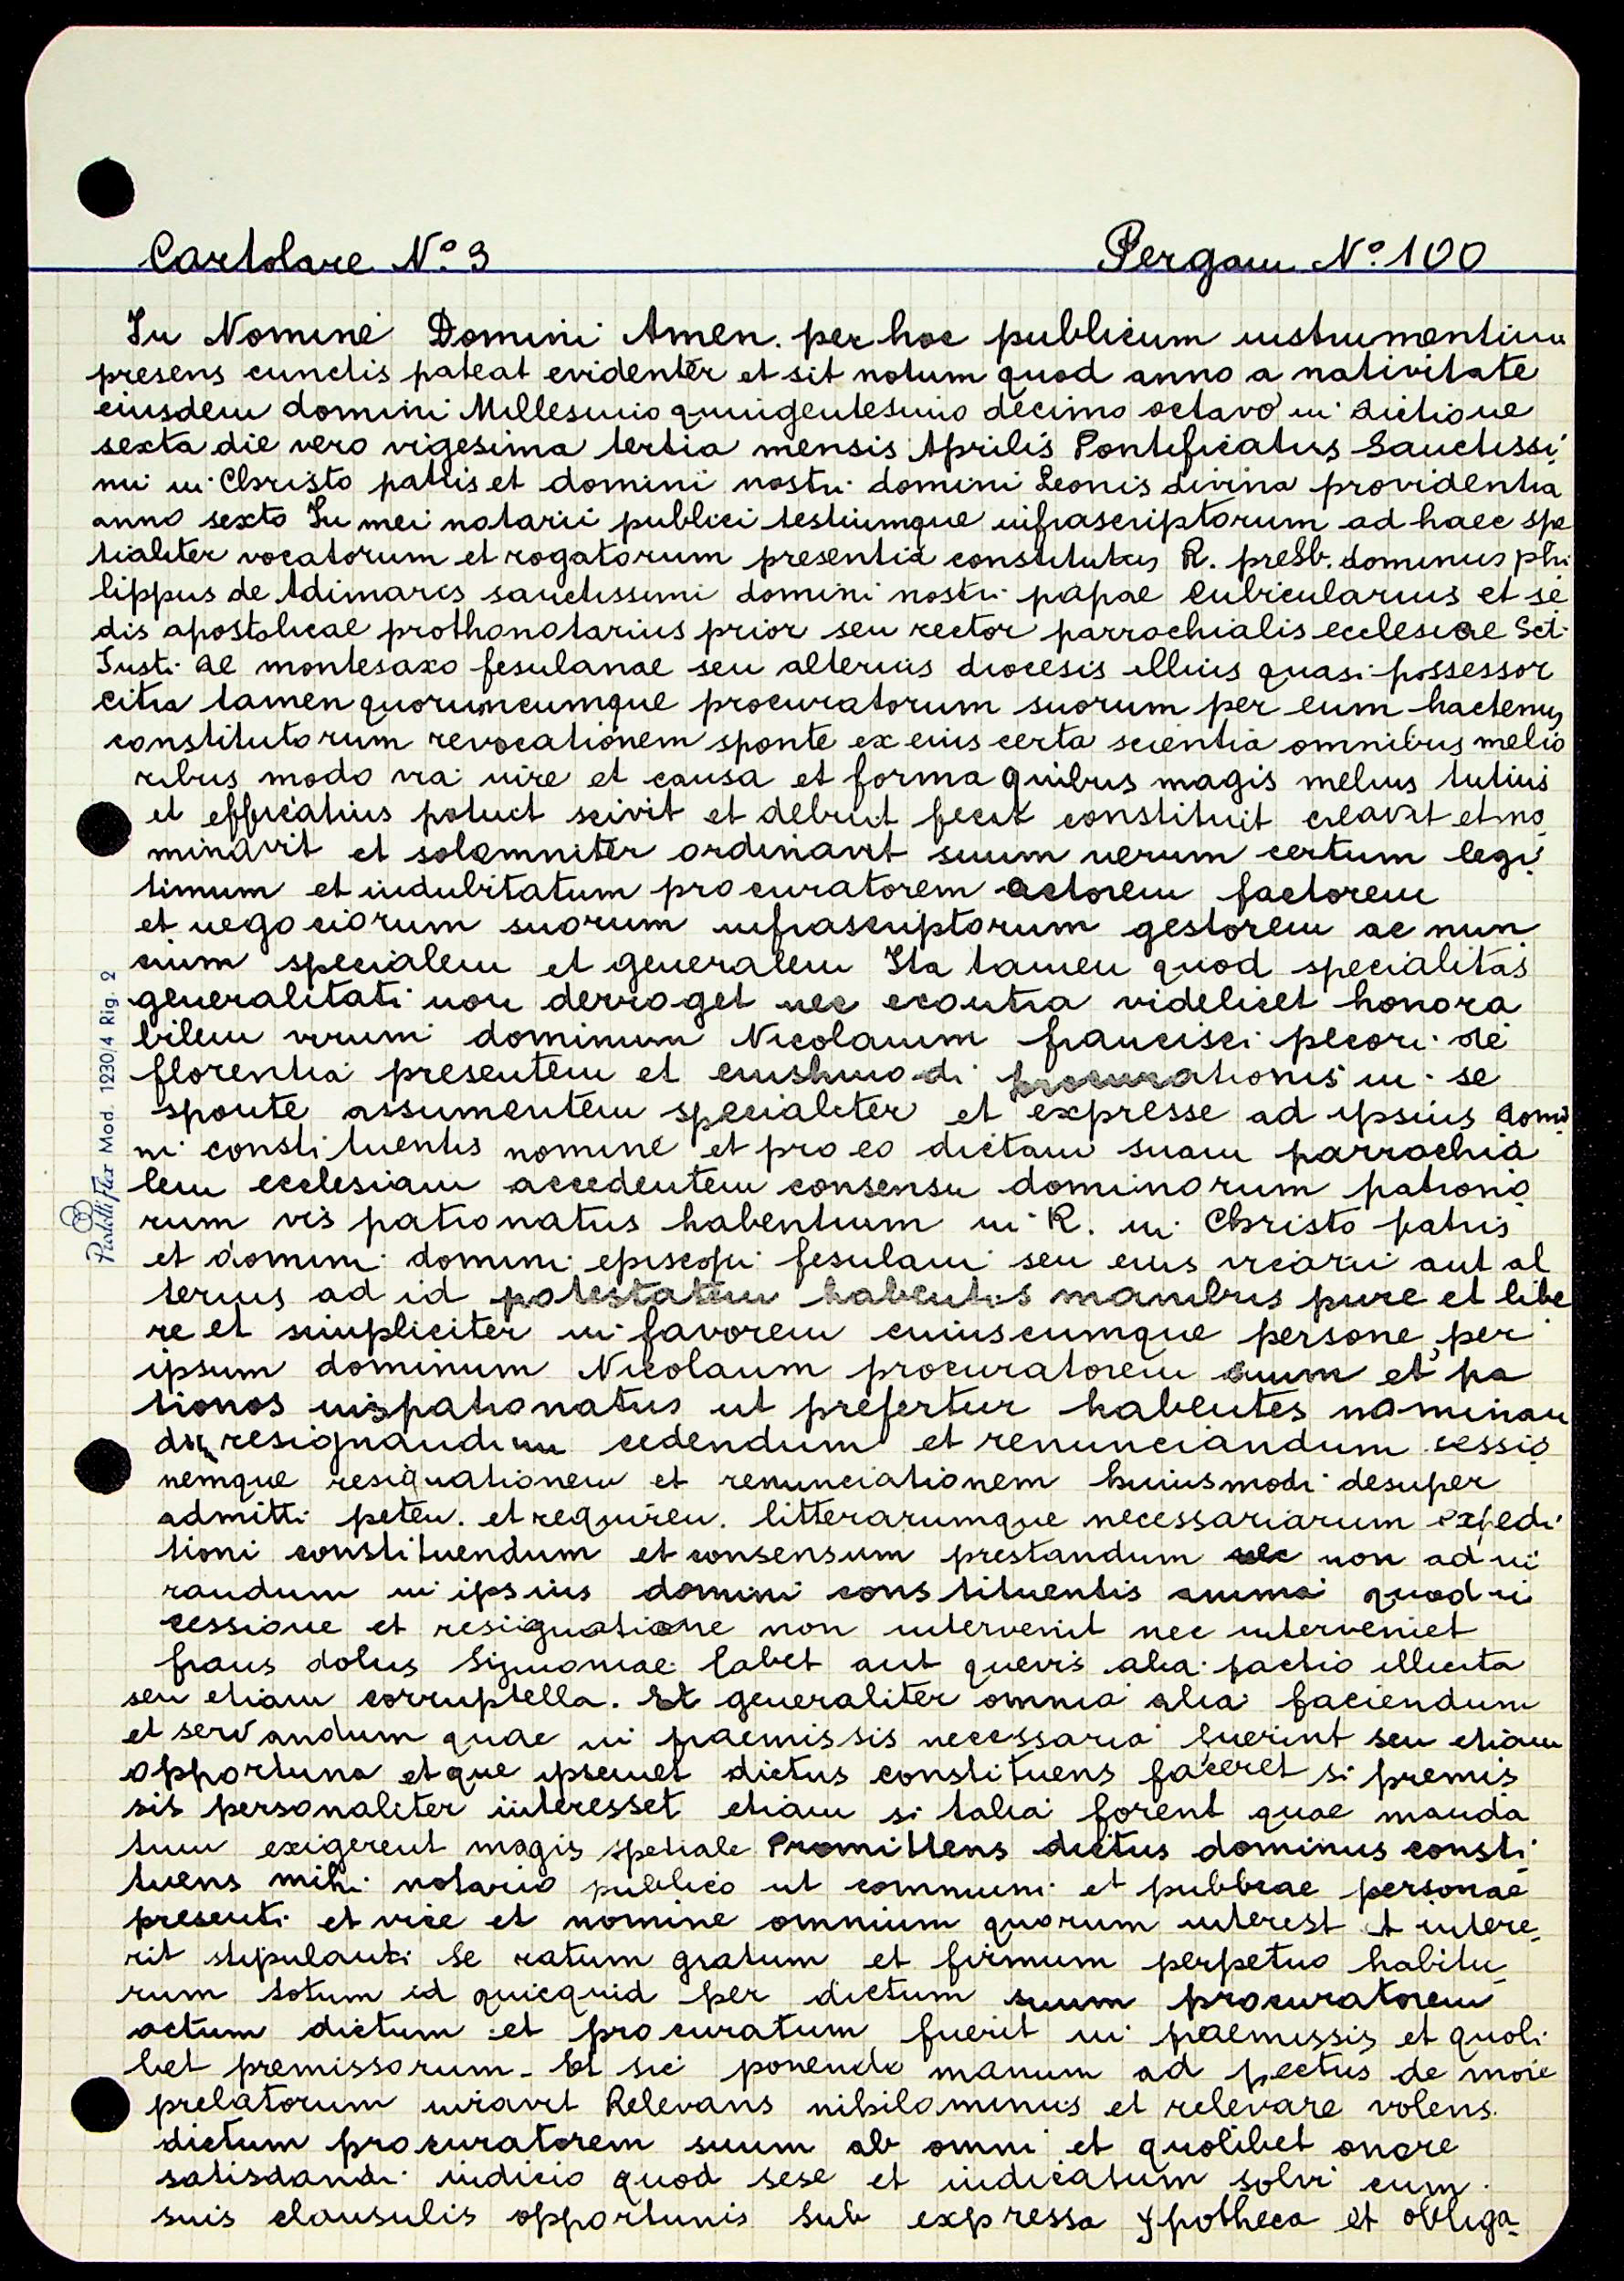 Cartolare N° 3 Pergam N° 100
In Nomine Domini Amen. per hoc publicum instrumentum
presens cunctis pateat evidenter et sit notum quod anno a nativitate
eiusdem domini Millesimo quingentesimo decimo octavo indictione
sexta die vero vigesima tertia mensis Aprilis Pontificatus Sanctissi
mi in Christo patris et domini nostri domini Leonis divina providentia
anno sexto In mei notarii publici testiumque infrascriptorum ad haec spe
tialiter vocatorum et rogatorum presentia constitutus R. presb. dominus phi
lippus de Adimaris sanctissimi domini nostri papae cubicularius et se
dis apostolicae prothonotarius prior seu rector parrochialis ecclesiae Scti
Iusti de montesaxo fesulanae seu alterius diocesis illius quasi possessor
citra tamen quorumcumque procuratorum suorum per eum hactenus
constitutorum revocationem sponte ex eius certa scientia omnibus melio
ribus modo via iure et causa et forma quibus magis melius tutius
et efficatius potuit scivit et debuit fecit constituit creavit et no
minavit et solemniter ordinavit suum verum certum legi
timum et indubitatum procuratorem actorem factorem
et negociorum suorum infrascriptorum gestorem ac nun
cium specialem et generalem Ita tamen quod specialitas
generalitati non derroget nec econtra videlicet honora
bilem virum dominum Nicolaum francisci pecori de
florentia presentem et eiushmodi procurationis in se
sponte assumentem specialiter et expresse ad ipsius domi
ni constituentis nomine et pro eo dictam suam parrochia
lem ecclesiam accedentem consensu dominorum patrono
rum vis patronatus habentium in R. in Christo patris
et domini domini episcopi fesulani seu eius vicarii aut al
terius ad id potestatem habentis manibus pure et libe
re et simpliciter in favorem cuiuscumque persone per
ipsum dominum Nicolaum procuratorem suum et pa
tronos iuspatronatus ut prefertur habentes nominan
dum resignandum cedendum et renunciandum cessio
nemque resignationem et renunciationem huiusmodi desuper
admitti peten. et requiren. litterarumque necessariarum expedi
tioni constituendum et consensum prestandum nec non ad iu
randum in ipsius domini constituentis anima quod in
cessione et resignatione non intervenit nec interveniet
fraus dolus Simoniae labet aut quevis alia pactio illicita
seu etiam corruptella. Et generaliter omnia alia faciendum
et servandum quae in praemissis necessaria fuerint seu etiam
opportuna et que ipsemet dictus constituens faceret si premis
sis personaliter interesset etiam si talia forent quae manda
tum exigerent magis spetiale Promittens dictus dominus consti
tuens mihi notario publico ut communi et pubbcae personae
presenti et vice et nomine omnium quorum interest et intere
rit stipulanti se ratum gratum et firmum perpetuo habitu
rum totum id quicquid per dictum suum procuratorem
actum dictum et procuratum fuerit in praemissis et quoli
bet premissorum. Et sic ponendo manum ad pectus de more
prelatorum iuravit Relevans nihilominus et relevare volens
dictum procuratorem suum ab omni et quolibet onore
satisdandi iudicio quod sese et iudicatum solvi cum
suis clausulis opportunis sub expressa ypotheca et obliga
Mod. 1230/4 Rig. 2